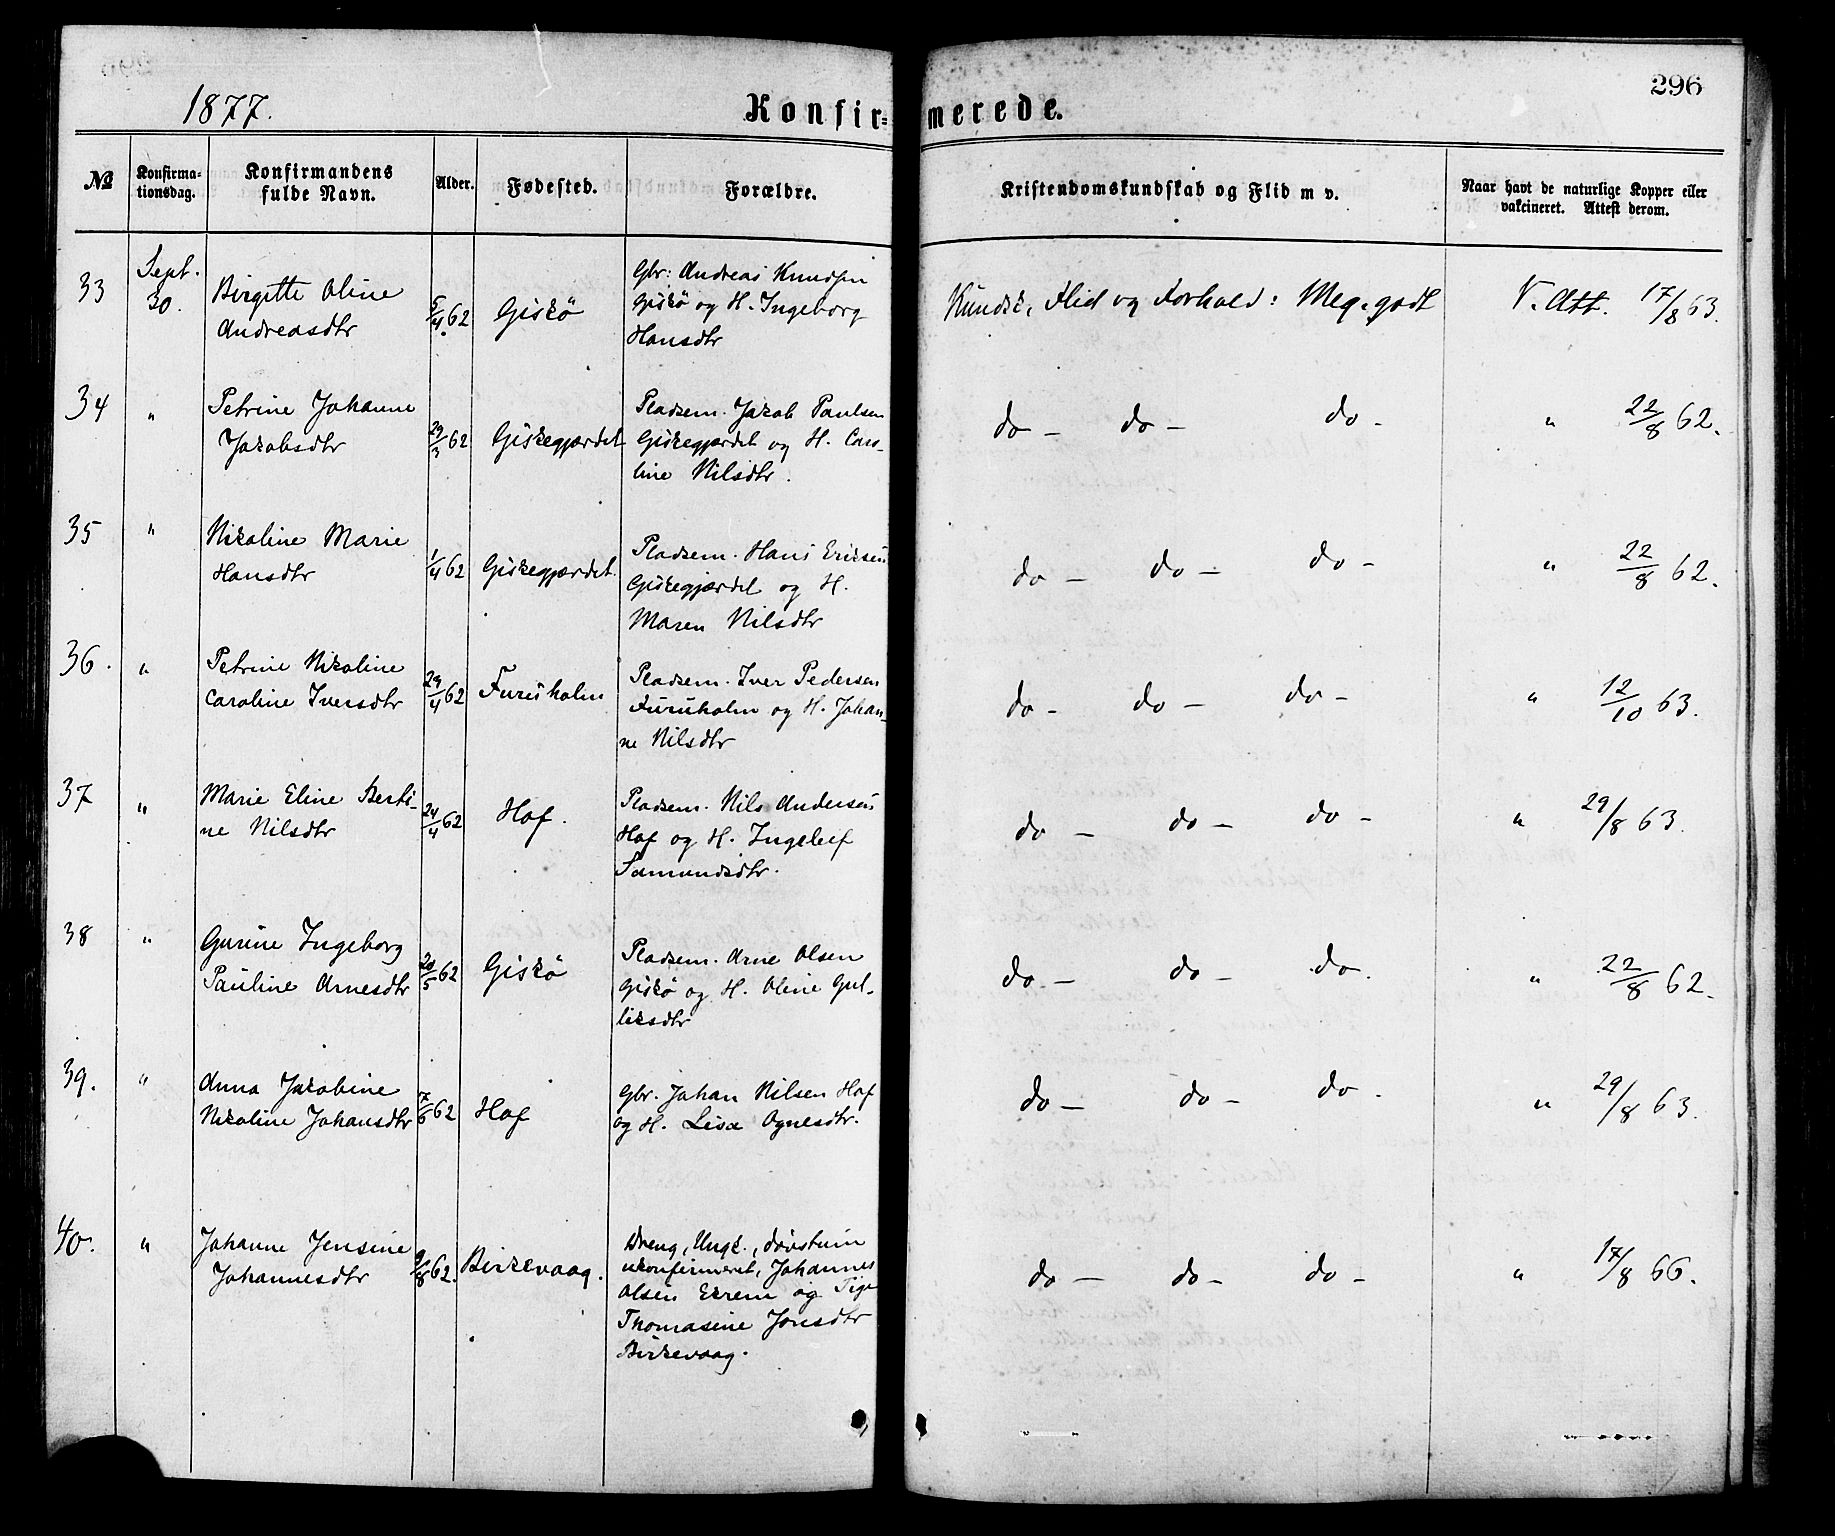 296
1877.
Konfirmerede.
No
Konfirma-
tionsdag.
Konfirmandens
fulde Navn.
Alder.
Fødested.
Forældre.
Kristendomskundskab og Flid m v.
Naar havt de naturlige Kopper eller
vakcineret. Attest derom.
33
Sept.
30.
Birgitte Oline
Andreasdtr
5/4 62
Giskø
Gbr: Andreas Knudsen
Giskø og H. Ingeborg
Hansdtr
Kundsk, Flid og Forhold: Meg. godt
V. Att. 17/8 63.
34
"
Petrine Johanne
Jakobsdtr
29/3 62
Giskegjærdet
Pladsem. Jakob Paulsen
Giskegjærdet og H. Caro-
line Nilsdtr.
do - do - do -
" 22/8 62.
35
"
Nikoline Marie
Hansdtr
1/4 62
Giskegjærdet.
Pladsem. Hans Eriksen
Giskegjærdet og H.
Maren Nilsdtr
do - do - do -
" 22/8 62.
36.
"
Petrine Nikoline
Caroline Iversdtr
29/4 62
Furuholm
Pladsem. Iver Pedersen
Furuholm og H. Johan-
ne Nilsdtr
do - do - do -
" 12/10 63.
37
"
Marie Eline Berti-
ne Nilsdtr
24/4 62
Hof.
Pladsem. Nils Andersen
Hof og H. Ingeleif
Samundsdtr.
do - do - do -
" 29/8 63.
38
"
Gurine Ingeborg
Pauline Arnesdtr
20/5 62
Giskø
Pladsem. Arne Olsen
Giskø og H. Oline Gul-
liksdtr
do - do - do.
" 22/8 62.
39.
"
Anna Jakobine
Nikoline Johansdtr
7/6 62
Hof
Gbr. Johan Nilsen Hof
og H. Lisa Ognesdtr.
do - do - do.
" 29/8 63.
40.
"
Johanne Jensine
Johannesdtr
9/8 62.
Birkevaag.
Dreng, Ungk.,
ukonfirmeret, Johannes
Olsen Ekrem og Pige
Thomasine Jonsdtr
Birkevaag.
do - do - do -
" 17/8 66.